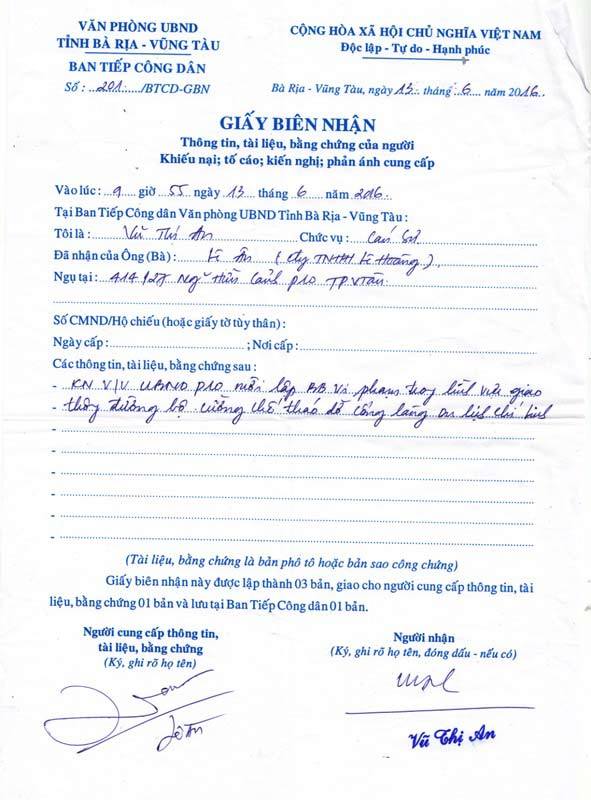 VĂN PHÒNG UBND
TỈNH BÀ RỊA - VŨNG TÀU
BAN TIẾP CÔNG DÂN
Số : 201 /BTCD-GBN
CỘNG HÒA XÃ HỘI CHỦ NGHĨA VIỆT NAM
Độc lập - Tự do - Hạnh phúc
Bà Rịa - Vũng Tàu, ngày 13 tháng 6 năm 2016
GIẤY BIÊN NHẬN
Thông tin, tài liệu, bằng chứng của người
Khiếu nại; tố cáo; kiến nghị; phản ánh cung cấp
Vào lúc : 9 giờ 55 ngày 13 tháng 6 năm 2016
Tại Ban Tiếp Công dân Văn phòng UBND Tỉnh Bà Rịa - Vũng Tàu :
Tôi là : Vũ Thị An Chức vụ : Cán sự
Đã nhận của Ông (Bà) : Lê Ân (Cty TNHH Lê Hoàng)
Ngụ tại : 414/27 Ng~ Hữu Cảnh P10 TP VTàu
Số CMND/Hộ chiếu (hoặc giấy tờ tùy thân) :
Ngày cấp : ; Nơi cấp :
Các thông tin, tài liệu, bằng chứng sau :
- KN V/V UBND P10 mời lập BB vi phạm trong lĩnh vực giao
- thông đường bộ cưỡng chế tháo dỡ cổng làng
-
-
-
-
-
(Tài liệu, bằng chứng là bản phô tô hoặc bản sao công chứng)
Giấy biên nhận này được lập thành 03 bản, giao cho người cung cấp thông tin, tài
liệu, bằng chứng 01 bản và lưu tại Ban Tiếp Công dân 01 bản.
Người cung cấp thông tin,
tài liệu, bằng chứng
(Ký, ghi rõ họ tên)
Lê Ân
Người nhận
(Ký, ghi rõ họ tên, đóng dấu - nếu có)
Vũ Thị An